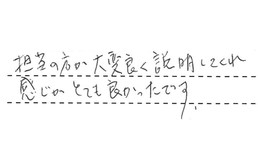 担当の方が大変良く説明してくれ
感じがとても良かったです。